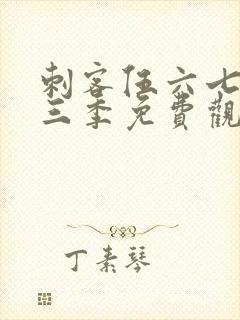 刺客伍六七
三季免費觀
丁素琴